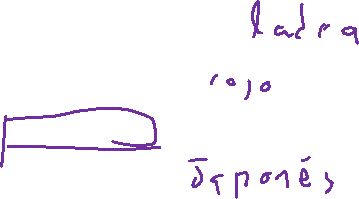 ladra
rojo
Japonés